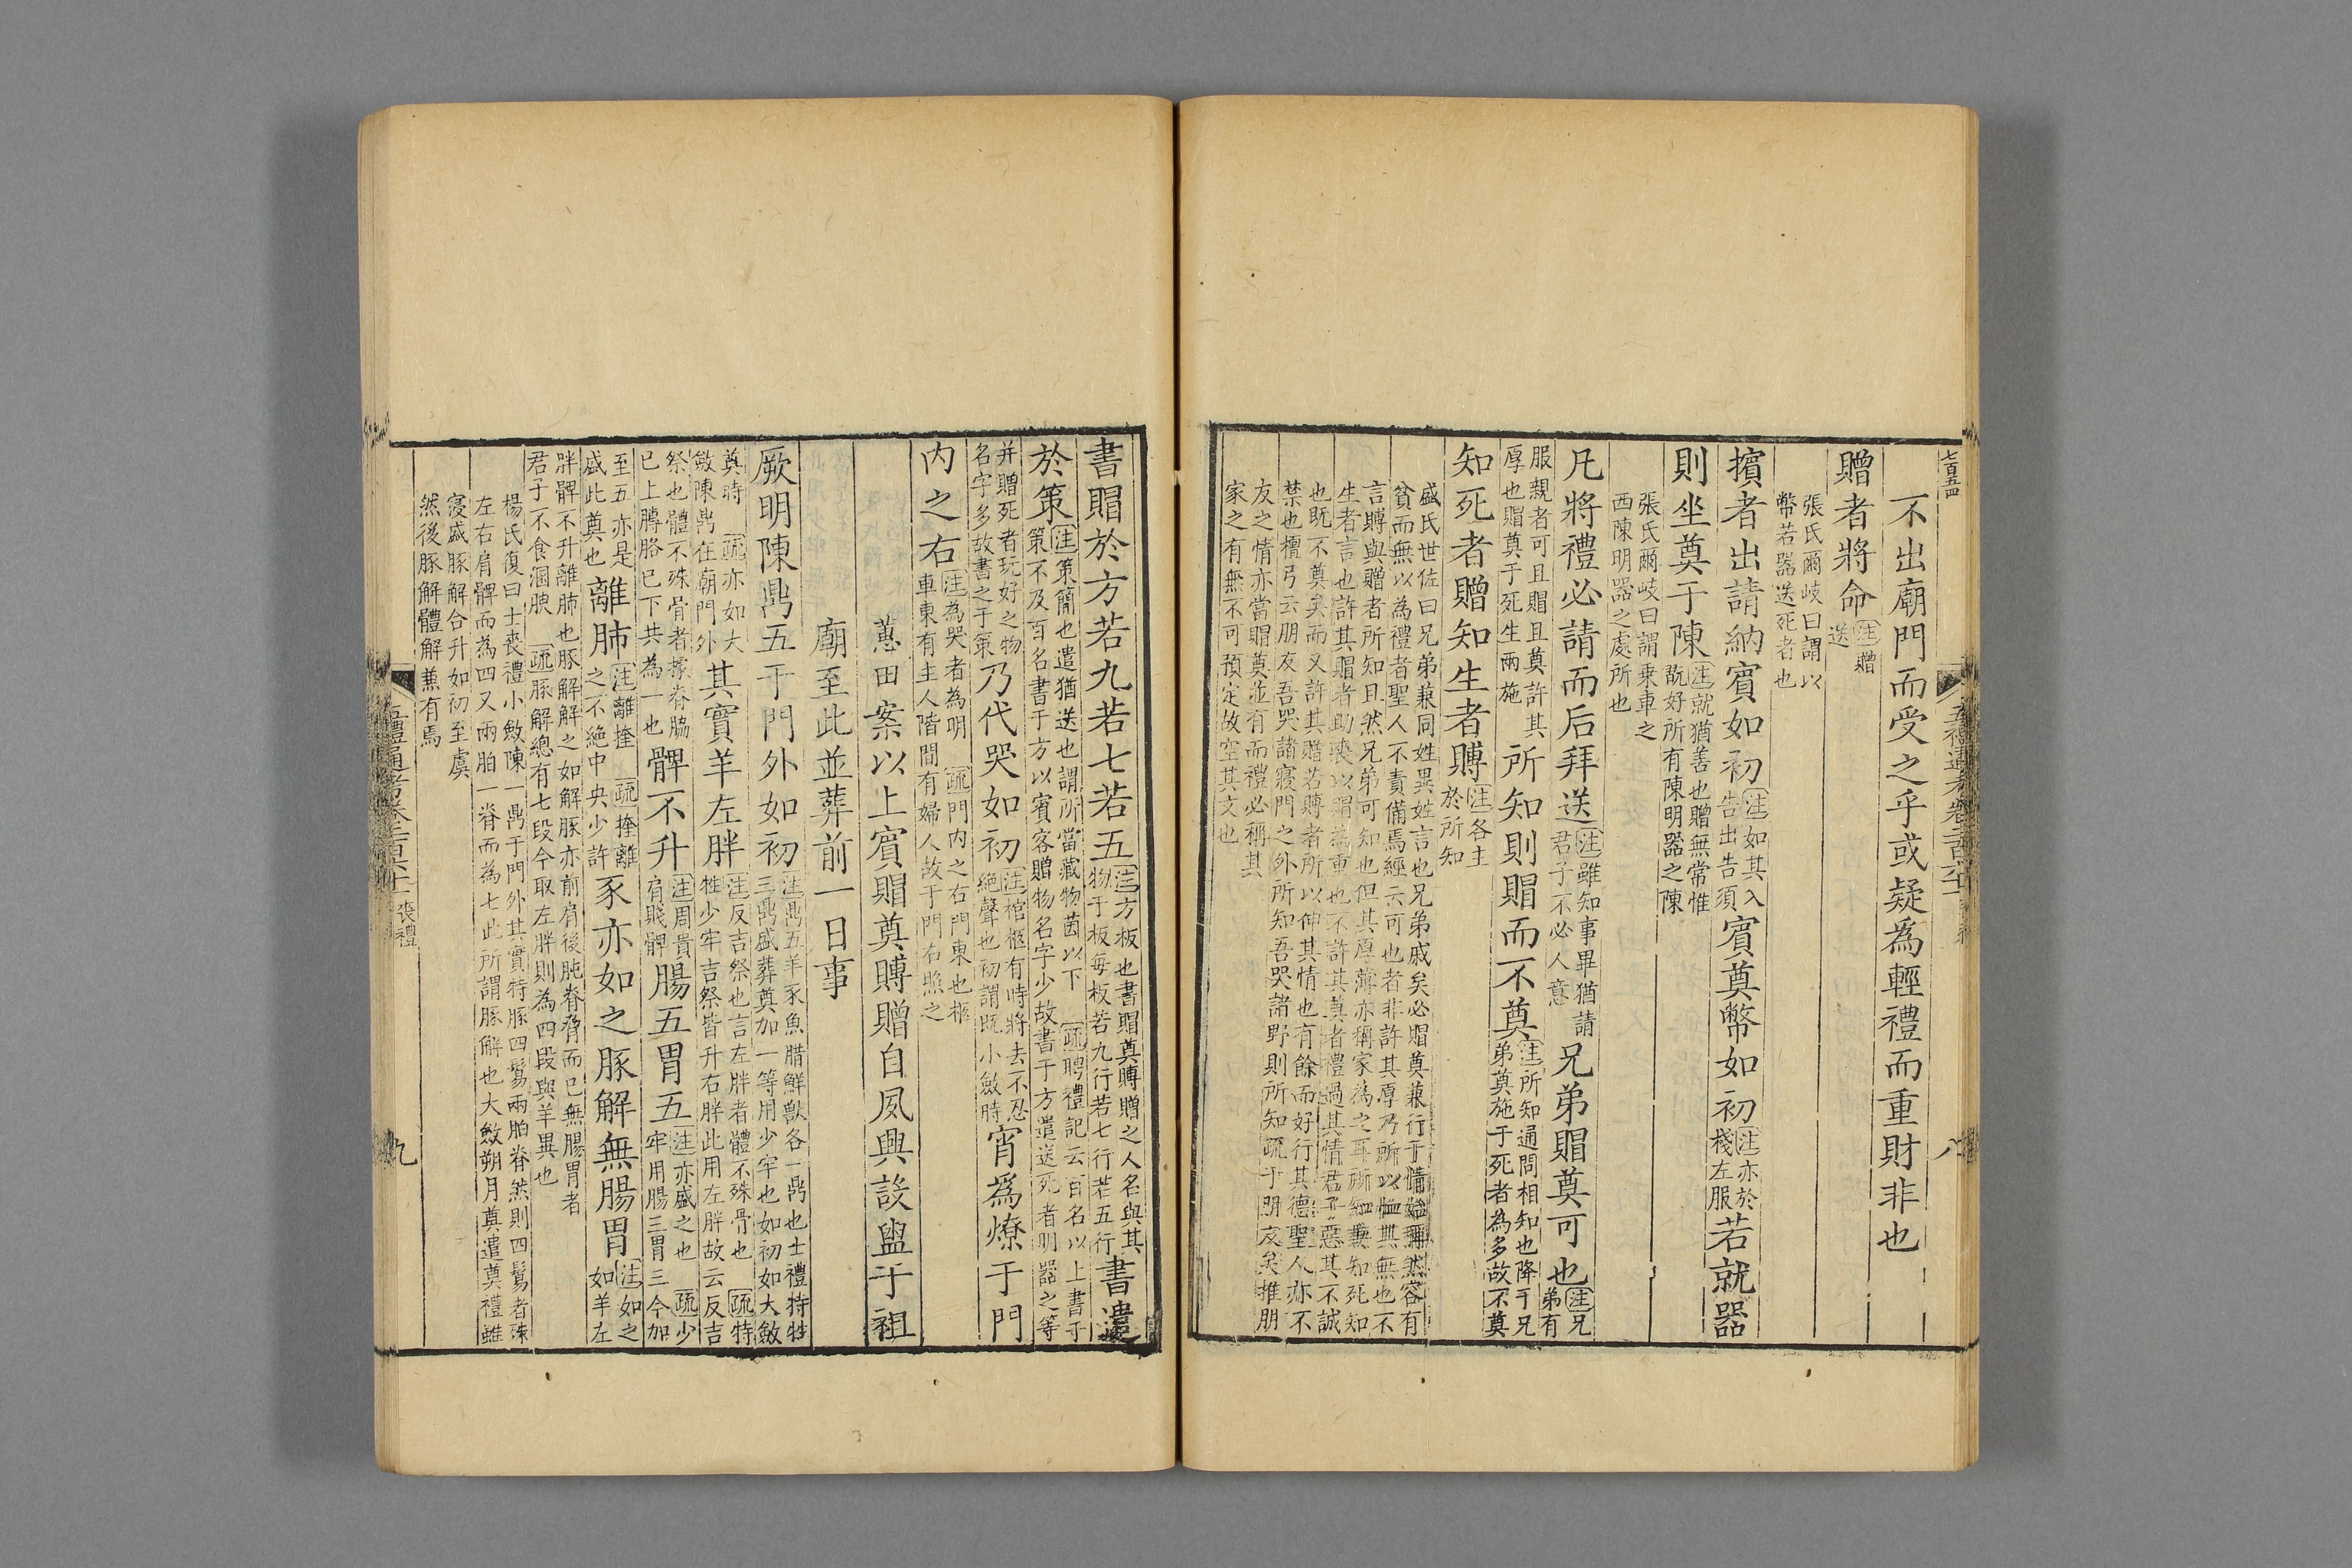 七百五四
不出廟門而受之乎或疑為輕禮而重財非也
贈者將命
注贈
送
張氏爾岐曰謂以
幣若器送死者也
擯者出請納賓如初
注如其入
告出告須
賓奠幣如初
注亦於
棧左服
若就器
則坐奠于陳
注就猶善也贈無常惟
翫好所有陳明器之陳
張氏爾岐曰謂乗車之
西陳明器之處所也
凡將禮必請而后拜送
注雖知事畢猶請
君子不必人意
兄弟賵奠可也
注兄
弟有
服親者可且賵且奠許其
厚也賵奠于死生兩施
所知則賵而不奠
注所知通問相知也降于兄
弟奠施于死者為多故不奠
知死者贈知生者賻
注各主
於所知
盛氏世佐曰兄弟兼同姓異姓言也兄弟戚矣必賵奠兼行于情始稱然容有
貧而無以為禮者聖人不責備焉經云可也者非許其厚乃所以恤其無也不
言賻與贈者所知且然兄弟可知也但其厚薄亦稱家為之耳所知兼知死知
生者言也許其賵者助喪以賵為重也不許其奠者禮過其情君子惡其不誠
也既不奠矣而又許其贈若賻者所以伸其情也有餘而好行其德聖人亦不
禁也檀弓云朋友吾哭諸寢門之外所知吾哭諸野則所知疏于朋友矣推朋
友之情亦當賵奠並有而禮必稱其
家之有無不可預定故空其文也
五禮通考卷二百六十一
八
書賵於方若九若七若五
注方板也書賵奠賻贈之人名與其
物于板每板若九行若七行若五行
書遣
於策
注策簡也遣猶送也謂所當藏物茵以下 疏聘禮記云百名以上書于
策不及百名書于方以賓客贈物名字少故書于方遣送死者明器之等
并贈死者玩好之物
名字多故書之于策
乃代哭如初
注棺柩有時將去不忍
絕聲也初謂既小斂時
宵為燎于門
內之右
注為哭者為明 疏門內之右門東也柩
車東有主人階間有婦人故于門右照之
蕙田案以上賓賵奠賻贈自夙興設盥于祖
廟至此並葬前一日事
厥明陳鼎五于門外如初
注鼎五羊豕魚腊鮮獸各一鼎也士禮特牲
三鼎盛葬奠加一等用少牢也如初如大斂
奠時 疏亦如大
斂陳鼎在廟門外
其實羊左胖
注反吉祭也言左胖者體不殊骨也 疏特
牲少牢吉祭皆升右胖此用左胖故云反吉
祭也體不殊骨者據脊脇
已上膊胳已下共為一也
髀不升
注周貴
肩賤髀
腸五胃五
注亦盛之也 疏少
牢用腸三胃三今加
至五亦是
盛此奠也
離肺
注離挃 疏挃離
之不絕中央少許
豕亦如之豚解無腸胃
注如之
如羊左
胖髀不升離肺也豚解解之如解豚亦前肩後肫脊脅而已無腸胃者
君子不食溷腴 疏豚解總有七段今取左胖則為四段與羊異也
楊氏復曰士喪禮小斂陳一鼎于門外其實特豚四鬄兩胉脊然則四鬄者殊
左右肩髀而為四又兩胉一脊而為七此所謂豚解也大斂朔月奠遣奠禮雖
寖盛豚解合升如初至虞
然後豚解體解兼有焉
五禮通考卷二百六十一 喪禮
九